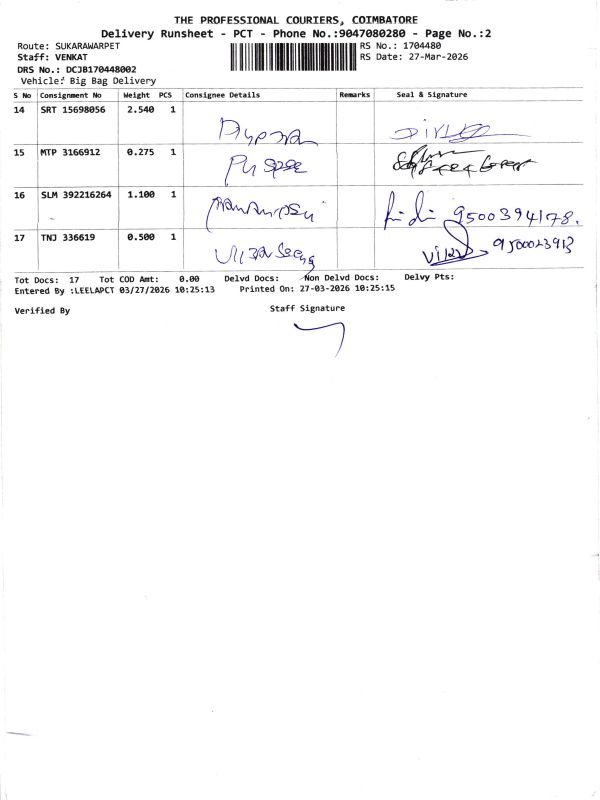 THE PROFESSIONAL COURIERS, COIMBATORE
Delivery Runsheet - PCT - Phone No.:9047080280 - Page No.:2
Route: SUKARAWARPET RS No.: 1704480
Staff: VENKAT RS Date: 27-Mar-2026
DRS No.: DCJB170448002
Vehicle: Big Bag Delivery
S No Consignment No Weight PCS Consignee Details Remarks Seal & Signature
14 SRT 15698056 2.540 1
15 MTP 3166912 0.275 1
16 SLM 392216264 1.100 1 9500394178.
17 TNJ 336619 0.500 1
Tot Docs: 17 Tot COD Amt: 0.00 Delvd Docs: Non Delvd Docs: Delvy Pts:
Entered By :LEELAPCT 03/27/2026 10:25:13 Printed On: 27-03-2026 10:25:15
Verified By Staff Signature